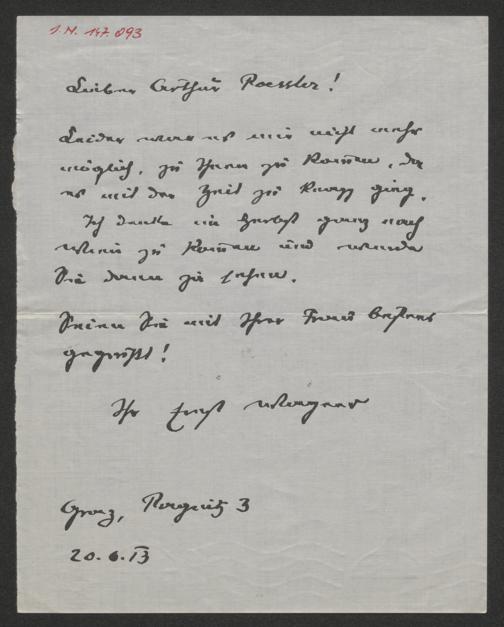 J.N. 147.093
Lieber Arthur Roessler!
Leider war es mir nicht mehr
möglich, zu Ihnen zu kommen, da
es mit der Zeit zu knapp ging.
Ich denke im Herbst ganz nach
Wien zu kommen und werde
Sie dann zu sehen.
Seien Sie mit Ihrer Frau bestens
gegrüßt!
Ihr Ernst Wagner
Graz, Ragnitz 3
20.6.13